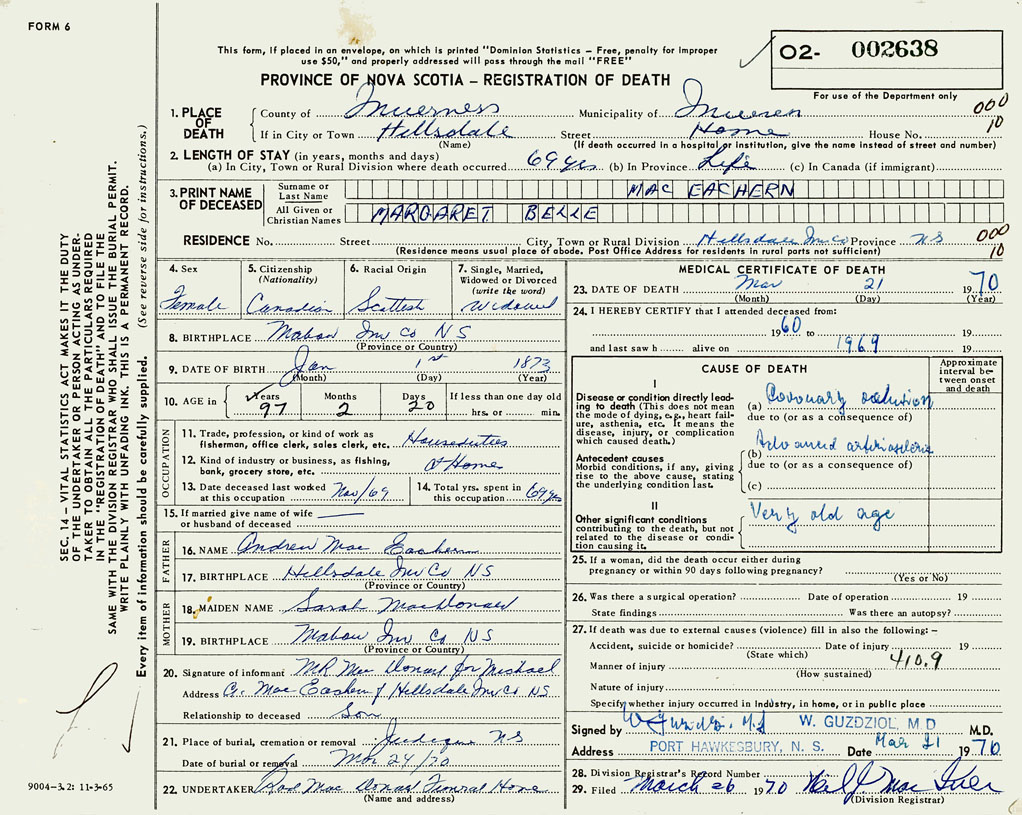 FORM 6
This form, if placed in an envelope, on which is printed "Dominion Statistics – Free, penalty for improper
use $50," and properly addressed will pass through the mail "FREE"
O2- 002638
For use of the Department only
PROVINCE OF NOVA SCOTIA – REGISTRATION OF DEATH
1. PLACE OF DEATH
County of Inverness Municipality of 000
If in City or Town Hillsdale Street Home House No. 10
(Name) (If death occurred in a hospital or institution, give the name instead of street and number)
2. LENGTH OF STAY (in years, months and days)
(a) In City, Town or Rural Division where death occurred 69 yrs (b) In Province Life (c) In Canada (if immigrant)
3. PRINT NAME OF DECEASED
Surname or Last Name MAC EACHERN
All Given or Christian Names MARGARET BELLE
RESIDENCE No. Street City, Town or Rural Division Hillsdale Inv Co Province NS 000
(Residence means usual place of abode. Post Office Address for residents in rural parts not sufficient) 10
4. Sex
Female
5. Citizenship (Nationality)
Canadian
6. Racial Origin
Scottish
7. Single, Married, Widowed or Divorced (write the word)
Widowed
8. BIRTHPLACE Mabou Inv Co NS
(Province or Country)
9. DATE OF BIRTH Jan 1st 1873
(Month) (Day) (Year)
10. AGE in Years Months Days If less than one day old
97 2 20 hrs. or min.
OCCUPATION
11. Trade, profession, or kind of work as
fisherman, office clerk, sales clerk, etc. Houseduties
12. Kind of industry or business, as fishing,
bank, grocery store, etc. at Home
13. Date deceased last worked at this occupation Nov/69
14. Total yrs. spent in this occupation 69 yrs
15. If married give name of wife
or husband of deceased
FATHER
16. NAME Andrew Mac Eachern
17. BIRTHPLACE Hillsdale Inv Co NS
(Province or Country)
MOTHER
18. MAIDEN NAME Sarah MacDonald
19. BIRTHPLACE Mabou Inv Co NS
(Province or Country)
20. Signature of informant MR Mac Donald for Michael
Address C. Mac Eachern Hillsdale Inv Co NS
Relationship to deceased Son
21. Place of burial, cremation or removal Judique NS
Date of burial or removal Mar 24/70
22. UNDERTAKER Rod Mac Donald Funeral Home
(Name and address)
MEDICAL CERTIFICATE OF DEATH
23. DATE OF DEATH Mar 21 1970
(Month) (Day) (Year)
24. I HEREBY CERTIFY that I attended deceased from:
1960 to 19
and last saw h alive on 1969 19
CAUSE OF DEATH
Approximate interval between onset and death
I
Disease or condition directly lead-
ing to death (This does not mean
the mode of dying, e.g., heart fail-
ure, asthenia, etc. It means the
disease, injury, or complication
which caused death.)
(a) Coronary occlusion
due to (or as a consequence of)
Antecedent causes
Morbid conditions, if any, giving
rise to the above cause, stating
the underlying condition last.
(b) Advanced
due to (or as a consequence of)
(c)
II
Other significant conditions
contributing to the death, but not
related to the disease or condi-
tion causing it.
Very old age
25. If a woman, did the death occur either during
pregnancy or within 90 days following pregnancy?
(Yes or No)
26. Was there a surgical operation? Date of operation 19
State findings Was there an autopsy?
27. If death was due to external causes (violence) fill in also the following: –
Accident, suicide or homicide? Date of injury 19
(State which)
410.9
Manner of injury
(How sustained)
Nature of injury
Specify whether injury occurred in industry, in home, or in public place
Signed by W. Guzdziol, M.D. W. GUZDZIOL, M D M.D.
Address PORT HAWKESBURY, N. S. Date Mar 21 1970
28. Division Registrar's Record Number
29. Filed March 26 1970
(Division Registrar)
SEC. 14 – VITAL STATISTICS ACT MAKES IT THE DUTY
OF THE UNDERTAKER OR PERSON ACTING AS UNDER-
TAKER TO OBTAIN ALL THE PARTICULARS REQUIRED
IN THE "REGISTRATION OF DEATH" AND TO FILE THE
SAME WITH THE DIVISION REGISTRAR WHO SHALL ISSUE THE BURIAL PERMIT.
WRITE PLAINLY WITH UNFADING INK. THIS IS A PERMANENT RECORD.
Every item of information should be carefully supplied. (See reverse side for instructions.)
9004–3.2: 11-3-65